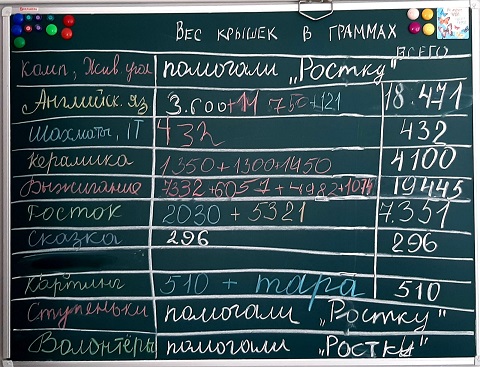 Вес крышек в граммах
ВСЕГО
комп, Жив. угол помогали "Ростку"
Английск. яз 3.600+11 750+121 18.471
Шахматы, IT 432 432
керамика 1350+1300+1450 4100
Выжигание 7332+6057+4982+1074 19445
Росток 2030 + 5321 7.351
Сказка 296 296
Картинг 510 + тара 510
Ступеньки помогали "Ростку"
Волонтёры помогали "Ростку"